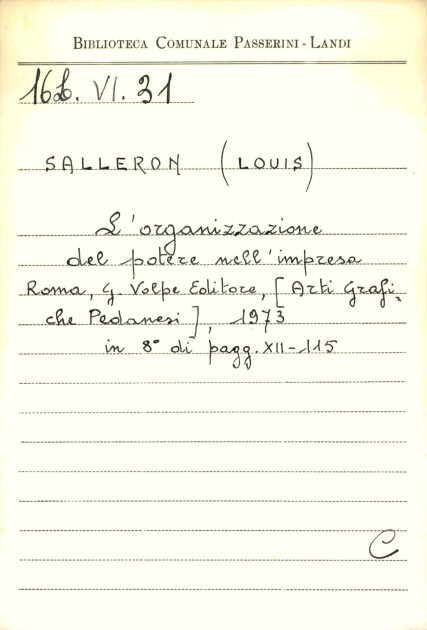 BIBLIOTECA COMUNALE PASSERINI - LANDI
16L. VI. 31
SALLERON (LOUIS)
L'organizzazione
del potere nell'impresa
Roma, G. Volpe Editore, [Arti Grafi-
che Pedanesi], 1973
in 8° di pagg. XII-115
C